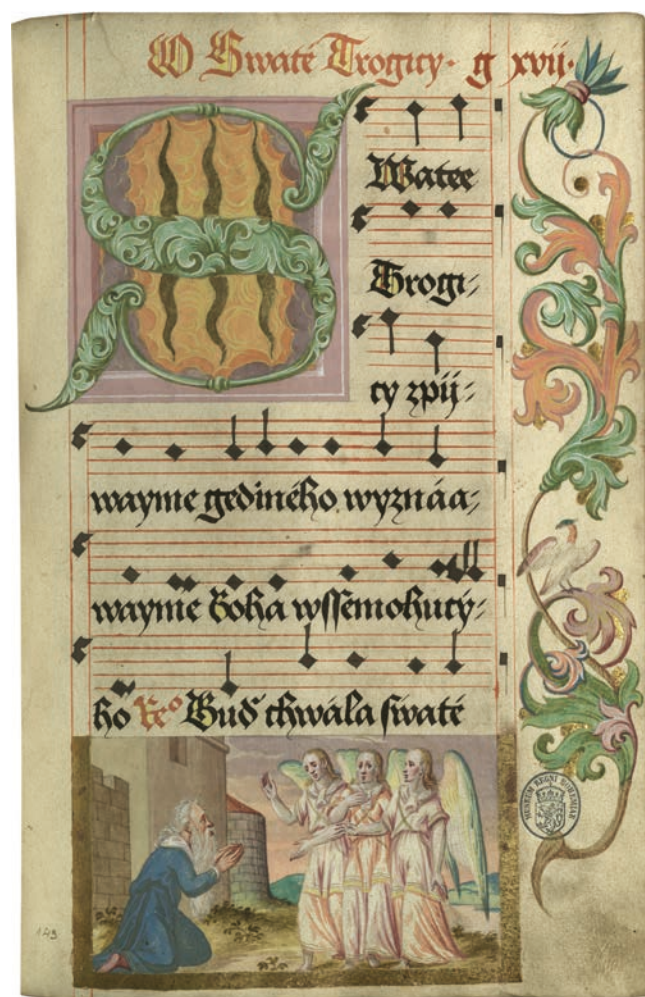 O Swaté Trogicy. g xvij.
SWatee
Trogi⸗
cy zpij⸗
waymе gediného wyznáa⸗
waymе Boha wssemohucy⸗
ho Reo Buď chwála swaté
MUSEUM REGNI BOHEMIAE
149